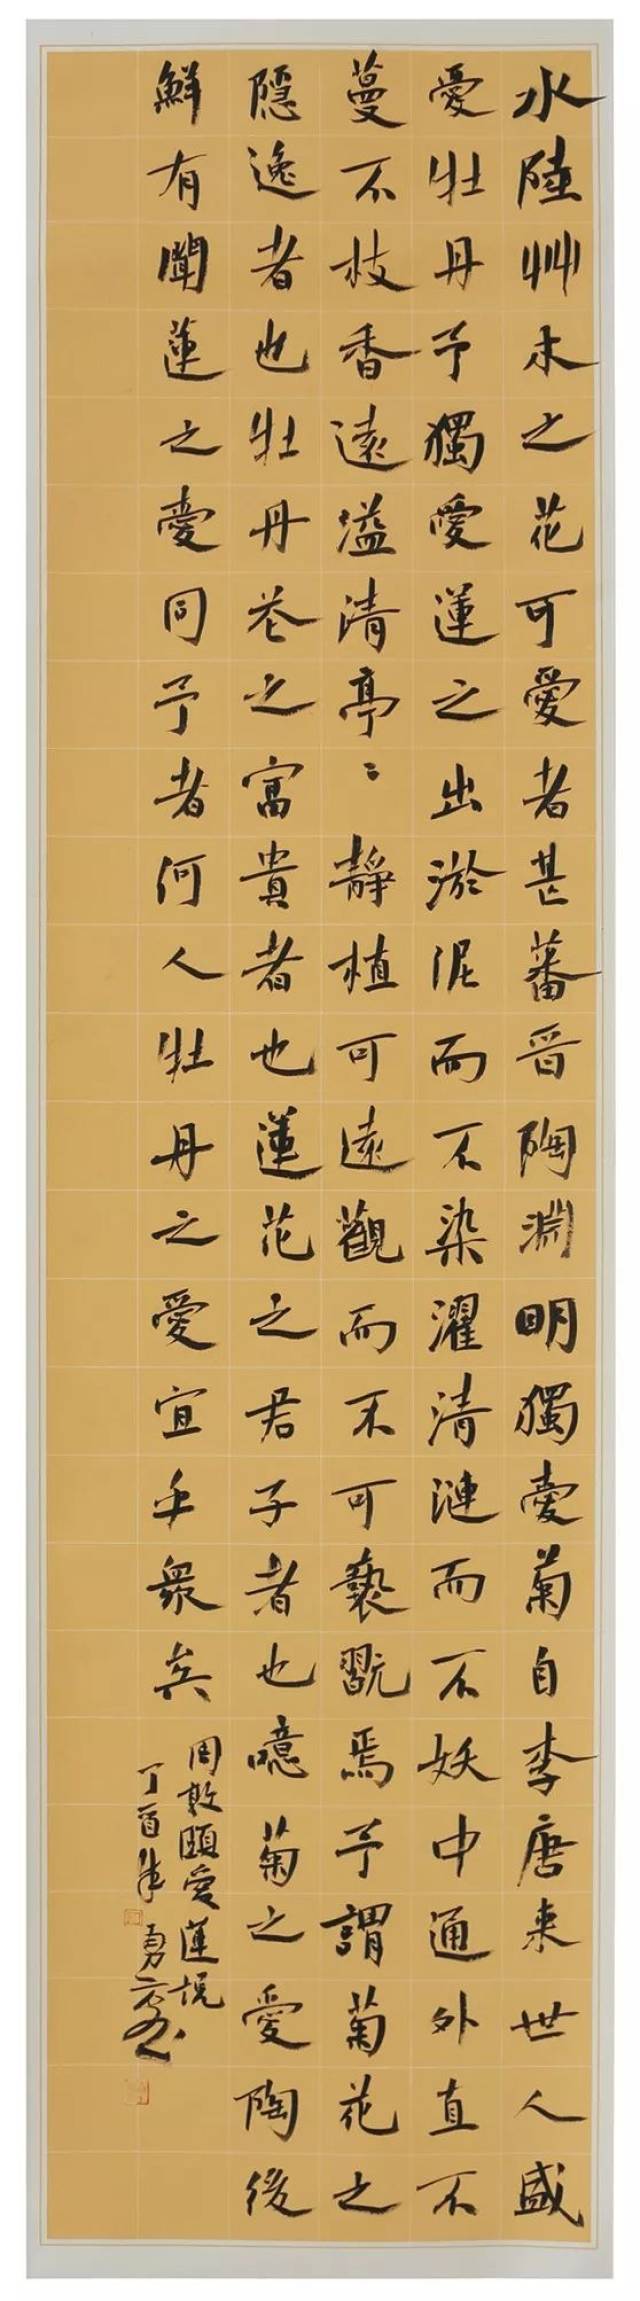 水陸艸木之花可愛者甚蕃晋陶淵明獨愛菊自李唐来世人盛
愛牡丹予獨愛蓮之出淤泥而不染濯清漣而不妖中通外直不
蔓不枝香遠溢清亭〻靜植可遠觀而不可褻翫焉予謂菊花之
隱逸者也牡丹花之富貴者也蓮花之君子者也噫菊之愛陶後
鮮有聞蓮之愛同予者何人牡丹之愛宜乎衆矣
周敦頤愛蓮説
丁酉年 勇